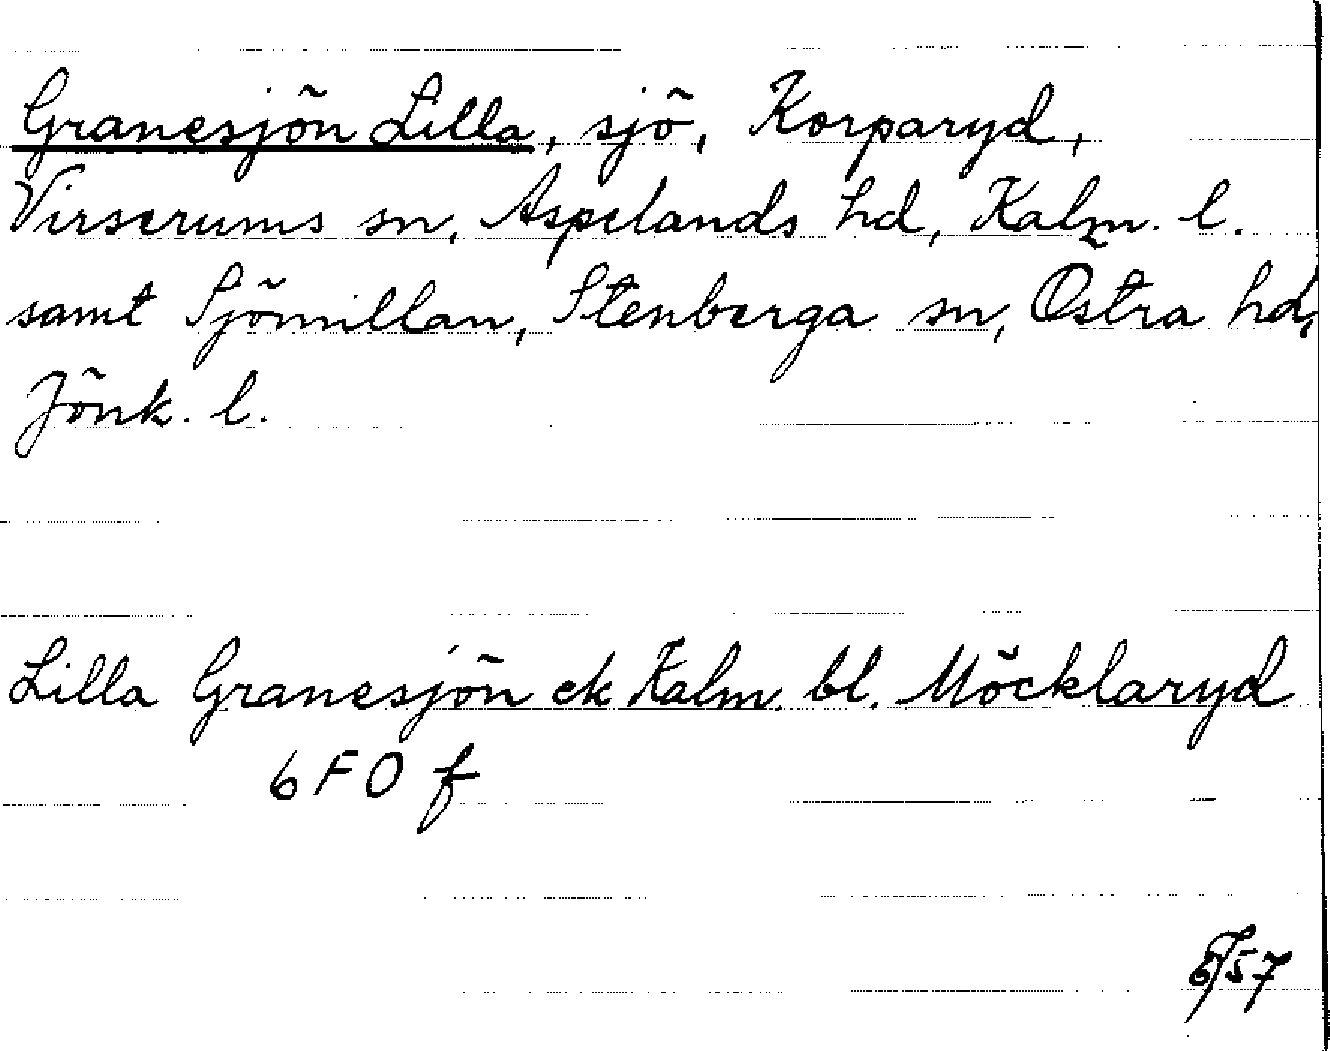 Granesjön Lilla, sjö, Korparyd,
Virserums sn, Aspelands hd, Kalm. l.
samt Sjömillan, Stenberga sn, Östra hd,
Jönk. l.
Lilla Granesjön ek Kalm. bl. Möcklaryd
6 F 0 f